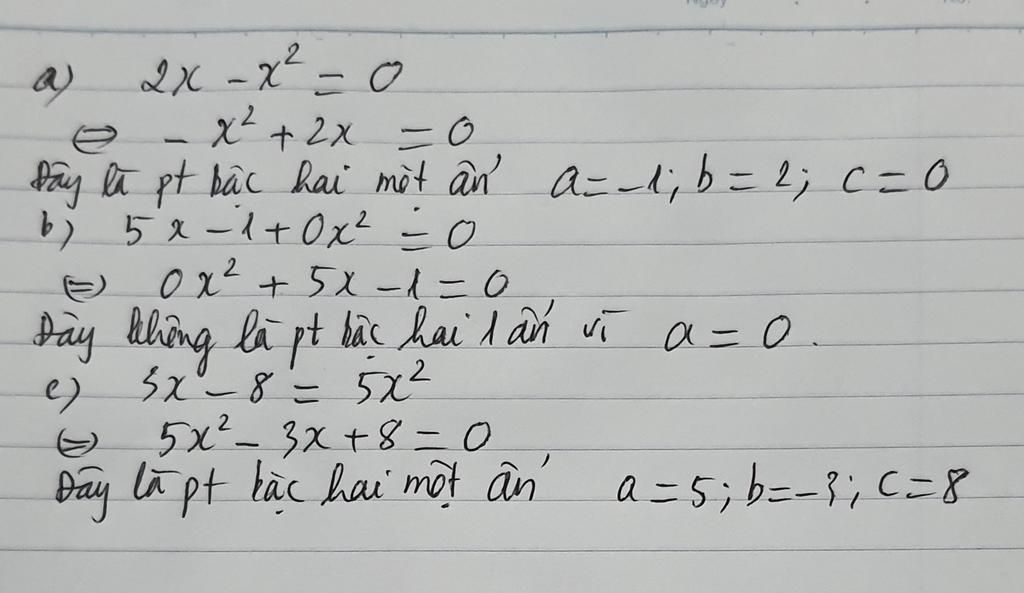 a) 2x - x² = 0
⇔ - x² + 2x = 0
Đây là pt bậc hai một ẩn a = -1; b = 2; c = 0
b) 5x - 1 + 0x² = 0
⇔ 0x² + 5x - 1 = 0
Đây không là pt bậc hai 1 ẩn vì a = 0.
c) 3x - 8 = 5x²
⇔ 5x² - 3x + 8 = 0
Đây là pt bậc hai một ẩn a = 5; b = -3; c = 8